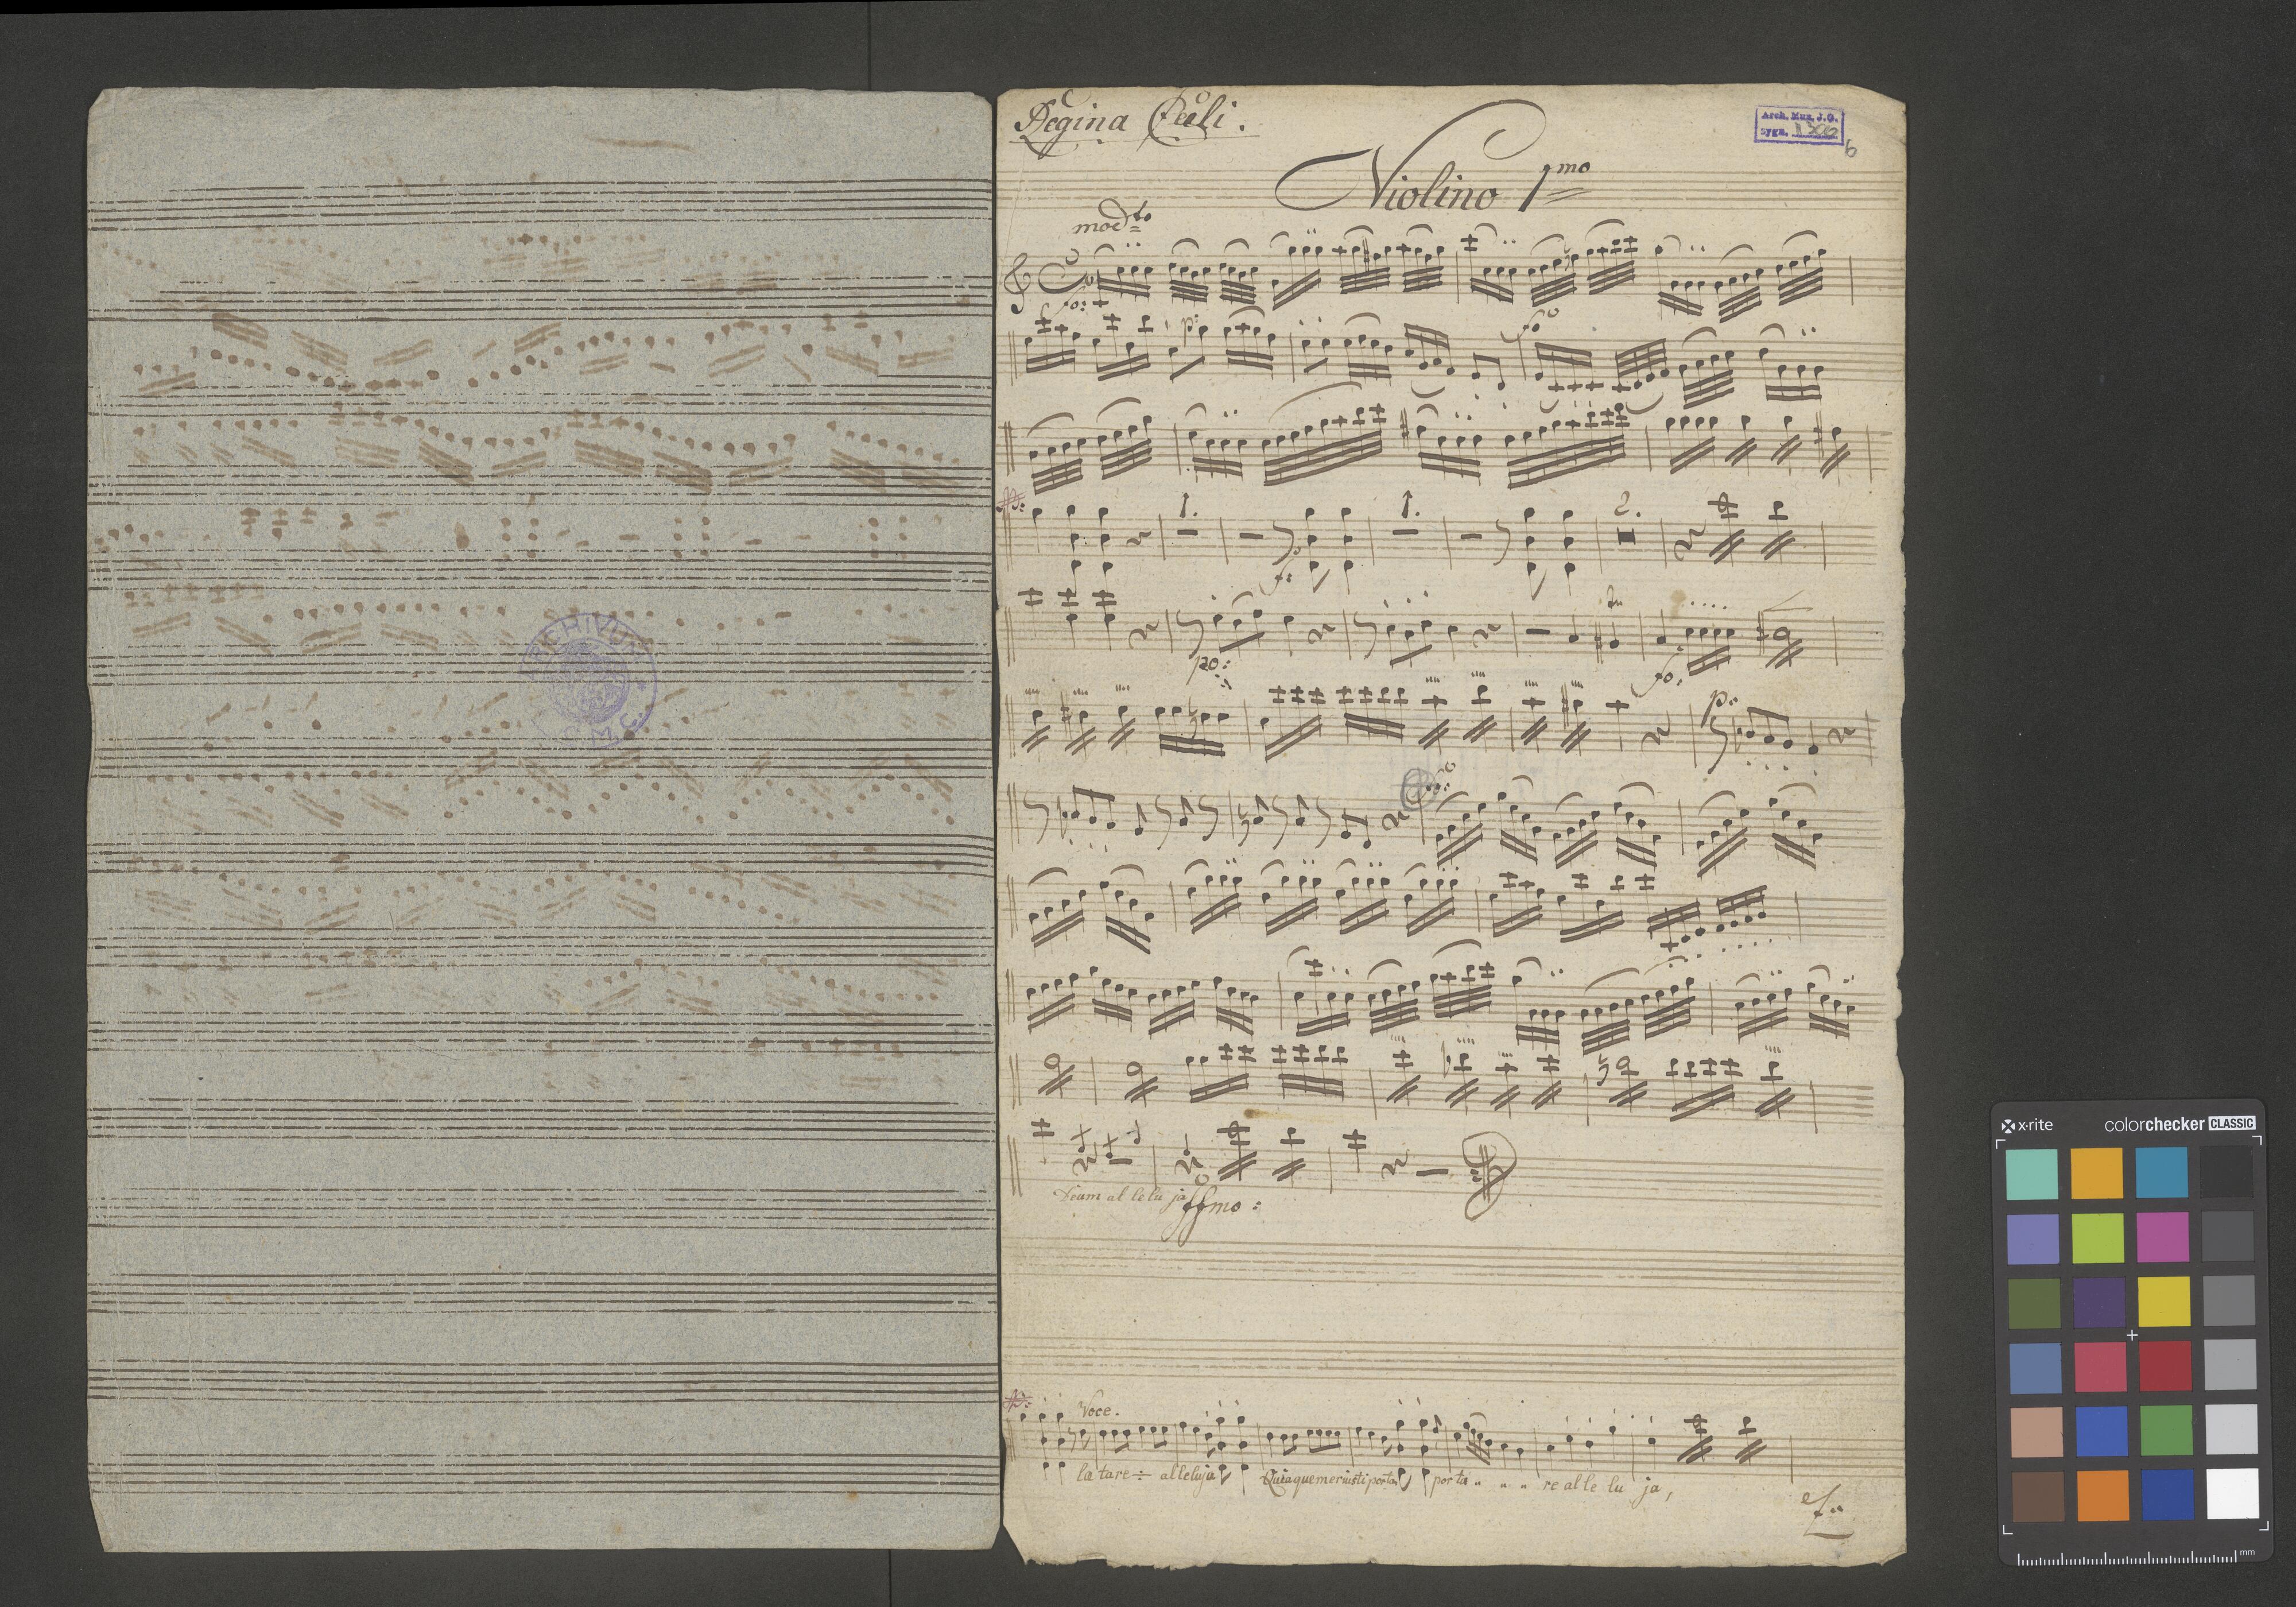 Regina Cæli.
Arch. Muz. J. G.
sygn.
6
Violino 1mo
modto
fo:
p:
fo
1.
1.
2.
f:
po:
fo:
p:
fo:
Deam al le lu ja
ffmo:
Voce.
la tare alleluja Quia quem eruisti porta porta re al le lu ja,
x-rite colorchecker CLASSIC
mm